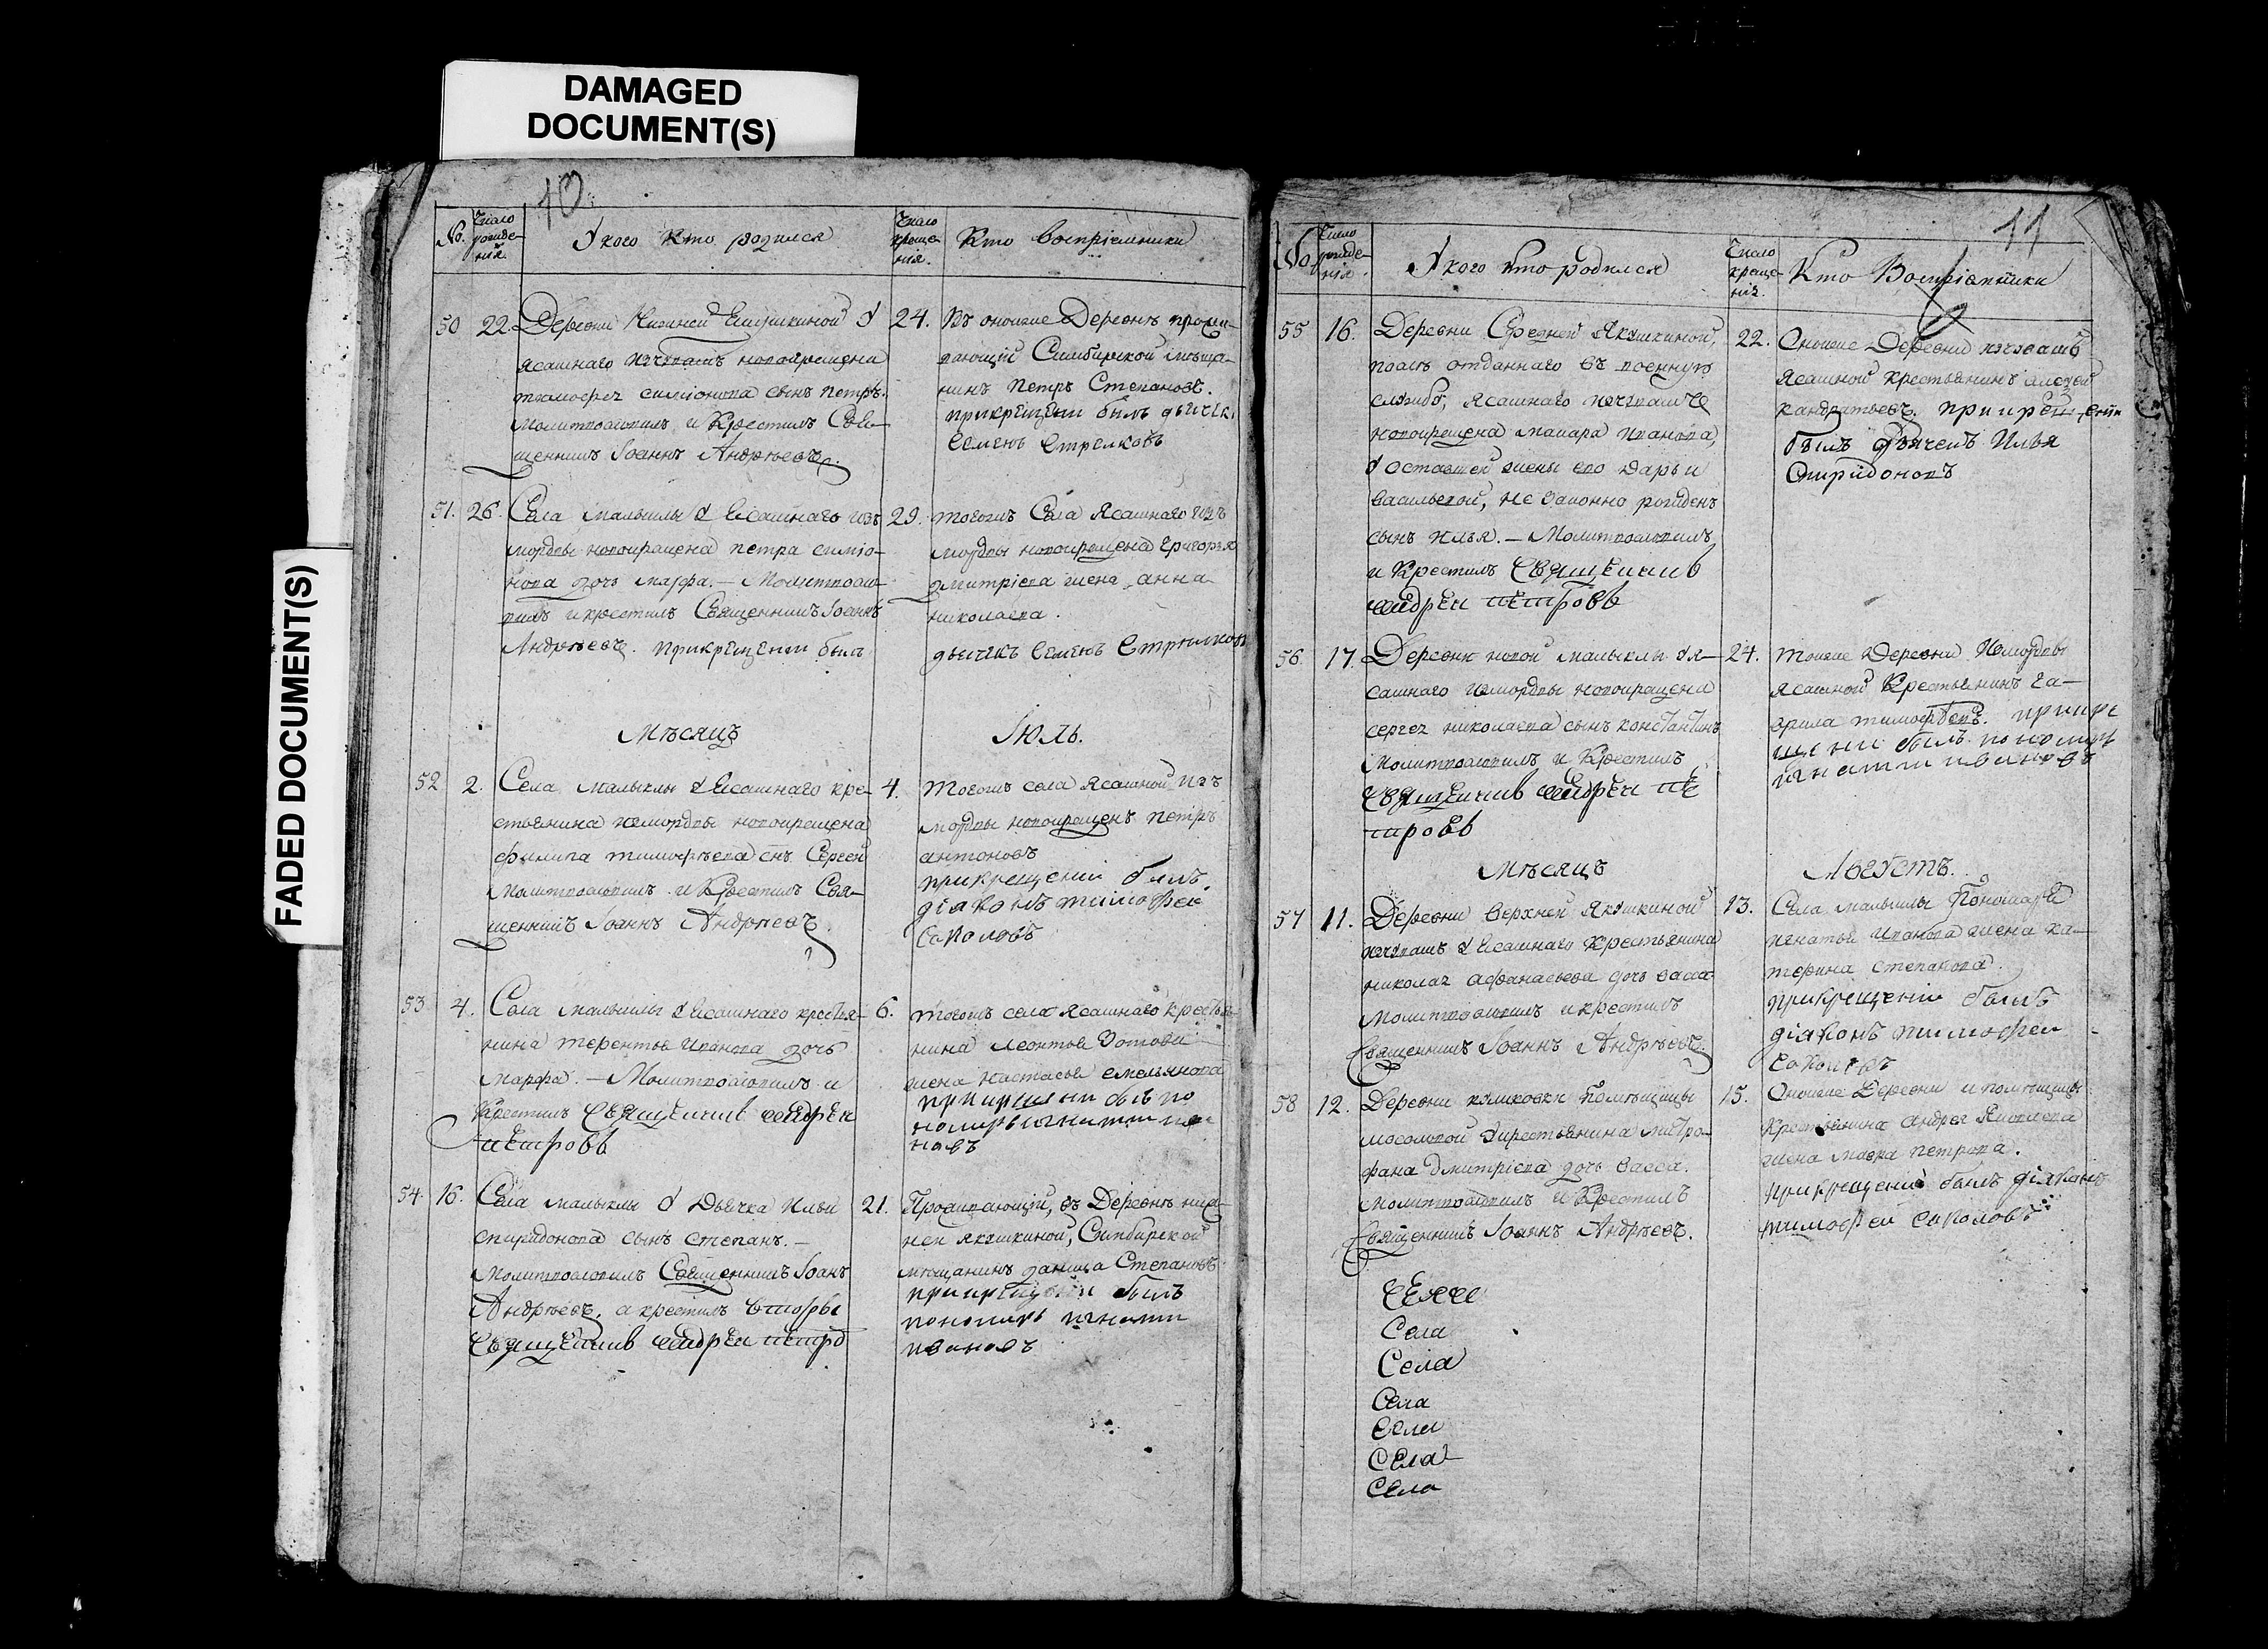 DAMAGED
DOCUMENT(S)
FADED DOCUMENT(S)
10
№.
Число рожде-
нія.
У кого Кто родился
Число креще-
нія.
Кто воспріемники
50 22. Деревни Нижней Якушкиной У
ясашнаго изчувашъ новокрещена
тимофея симіонова сынъ петръ.
молитвовалъ и Крестилъ Свя-
щенникъ Іоаннъ Андрѣевъ.
24. Въ оной же Деревнѣ прожи-
вающій Симбирской мѣща-
нинъ петръ Степановъ.
прикрещени былъ дьячекъ
Семенъ Стрелковъ
51. 26. Села малыклы У Ясашнаго изъ
мордвы новокрещена петра симіо-
нова дочь марфа. — Молитвовал
и крестилъ Священникъ Іоаннъ
Андрѣевъ. прикрещени былъ
29. тогожъ Села Ясашнаго изъ
мордвы новокрещена григорья
дмитріева жена анна
николаева.
дьячекъ Семенъ Стрѣлковъ
Мѣсяцъ
Іюль.
52 2. Села малыклы У Ясашнаго кре-
стьянина измордвы новокрещена
филипа тимофѣева снъ Сергей
молитвовалъ и Крестилъ Свя-
щенникъ Іоаннъ Андрѣевъ.
4. Тогожъ села Ясашной изъ
мордвы новокрещенъ петръ
антоновъ
прикрещени былъ
діяконъ тимофей
Соколовъ
53 4. Села малыклы У Ясашнаго крестья-
нина терентья Иванова дочь
марфа. — Молитвовалъ и
Крестилъ Священникъ Андрей
петровъ
6. тогожъ села Ясашнаго крестья-
нина леонтья Зотова
жена настасья емельянова
прикрещени былъ по
номарь игнатии ива
новъ
54. 16. Села малыклы У Дьячка Ильи
спиридонова сынъ степанъ. —
молитвовалъ Священникъ Іоанъ
Андрѣевъ, а крестилъ вторы
Священникъ Андрей петро
21. Проживающій, въ Деревнѣ ниж-
ней якушкиной, Симбирской
мѣщанинъ данила Степановъ
прикрещении былъ
пономарь игнатии
ивановъ
11
№
Число рожде-
нія.
У кого Кто родился
Число креще-
нія.
Кто Воспріемники
55 16. Деревни Средней Якушкиной,
послѣ отданнаго въ военную
службу, ясашнаго изчувашъ
новокрещена макара иванова,
У оставшей жены его дарьи
васильевой, не законно рожденъ
сынъ илья. — Молитвовалъ
и Крестилъ Священникъ
Андрей петровъ
22. Оной же Деревни изчувашъ
Ясашной крестьянинъ алексей
кандратьевъ. прикрещении
былъ дьячекъ Илья
Спиридоновъ
56. 17. Деревни новой малыклы У я-
сашнаго измордвы новокрещена
сергея николаева сынъ константинъ
молитвовалъ и Крестилъ
Священникъ Андрей пе
тровъ
24. тоя же Деревни Измордвы
ясашной Крестьянинъ га-
врила тимофѣевъ. прикре
щении былъ пономарь
игнатии ивановъ
Мѣсяцъ
Августъ.
57 11. Деревни верхней Якушкиной
изчувашъ У Ясашнаго Крестьянина
николая афанасьева дочь васса
молитвовалъ и крестилъ
Священникъ Іоаннъ Андрѣевъ.
13. Села малыклы Пономаря
игнатья иванова жена ка-
терина степанова.
прикрещении былъ
діяконъ тимофеи
Соколовъ
58 12. Деревни Помѣщицы
мосоловой У крестьянина митро-
фана дмитріева дочь васса.
молитвовалъ и Крестилъ
Священникъ Іоаннъ Андрѣевъ.
15. Оной же Деревни и помѣщицы
Крестьянина андрея Яковлева
жена мавра петрова.
прикрещении былъ діяконъ
тимофей соколовъ
Села
Села
Села
Села
Села
Села